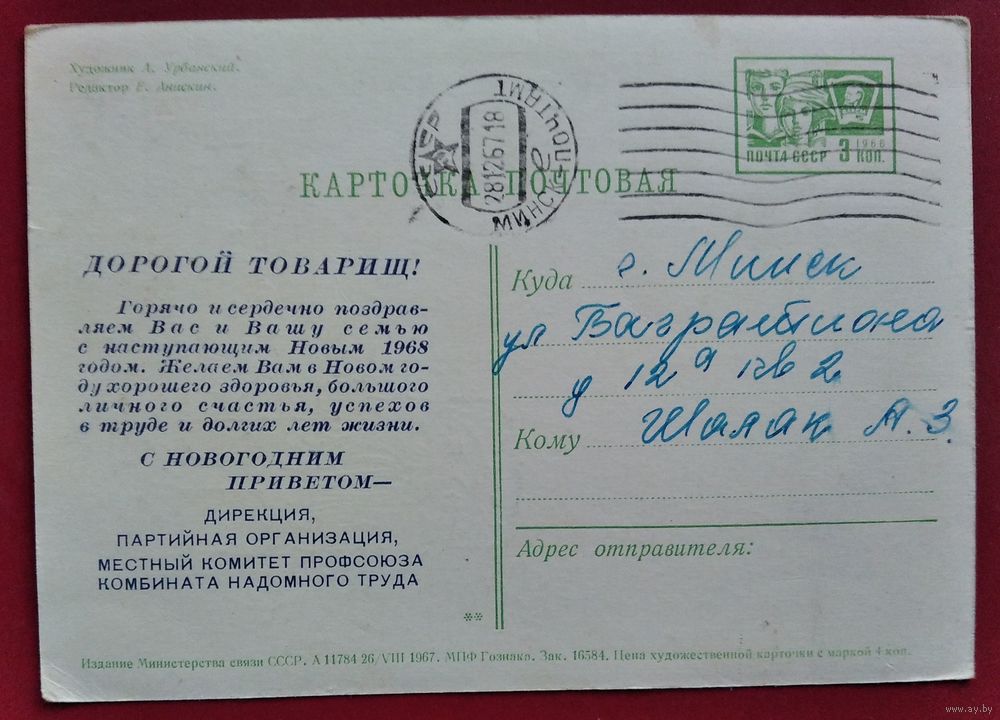 Художник А. Урбанский.
Редактор Е. Анискин.
СССР
МИНСК-ПОЧТАМТ
28126718
1966
ПОЧТА СССР 3 КОП.
КАРТОЧКА ПОЧТОВАЯ
ДОРОГОЙ ТОВАРИЩ!
Горячо и сердечно поздрав-
ляем Вас и Вашу семью
с наступающим Новым 1968
годом. Желаем Вам в Новом го-
ду хорошего здоровья, большого
личного счастья, успехов
в труде и долгих лет жизни.
С НОВОГОДНИМ
ПРИВЕТОМ—
ДИРЕКЦИЯ,
ПАРТИЙНАЯ ОРГАНИЗАЦИЯ,
МЕСТНЫЙ КОМИТЕТ ПРОФСОЮЗА
КОМБИНАТА НАДОМНОГО ТРУДА
**
Куда г. Минск
ул Багратиона
д 12а кв 2
Кому А. З.
Адрес отправителя:
Издание Министерства связи СССР. А 11784 26/VIII 1967. МПФ Гознака. Зак. 16584. Цена художественной карточки с маркой 4 коп.
www.ay.by